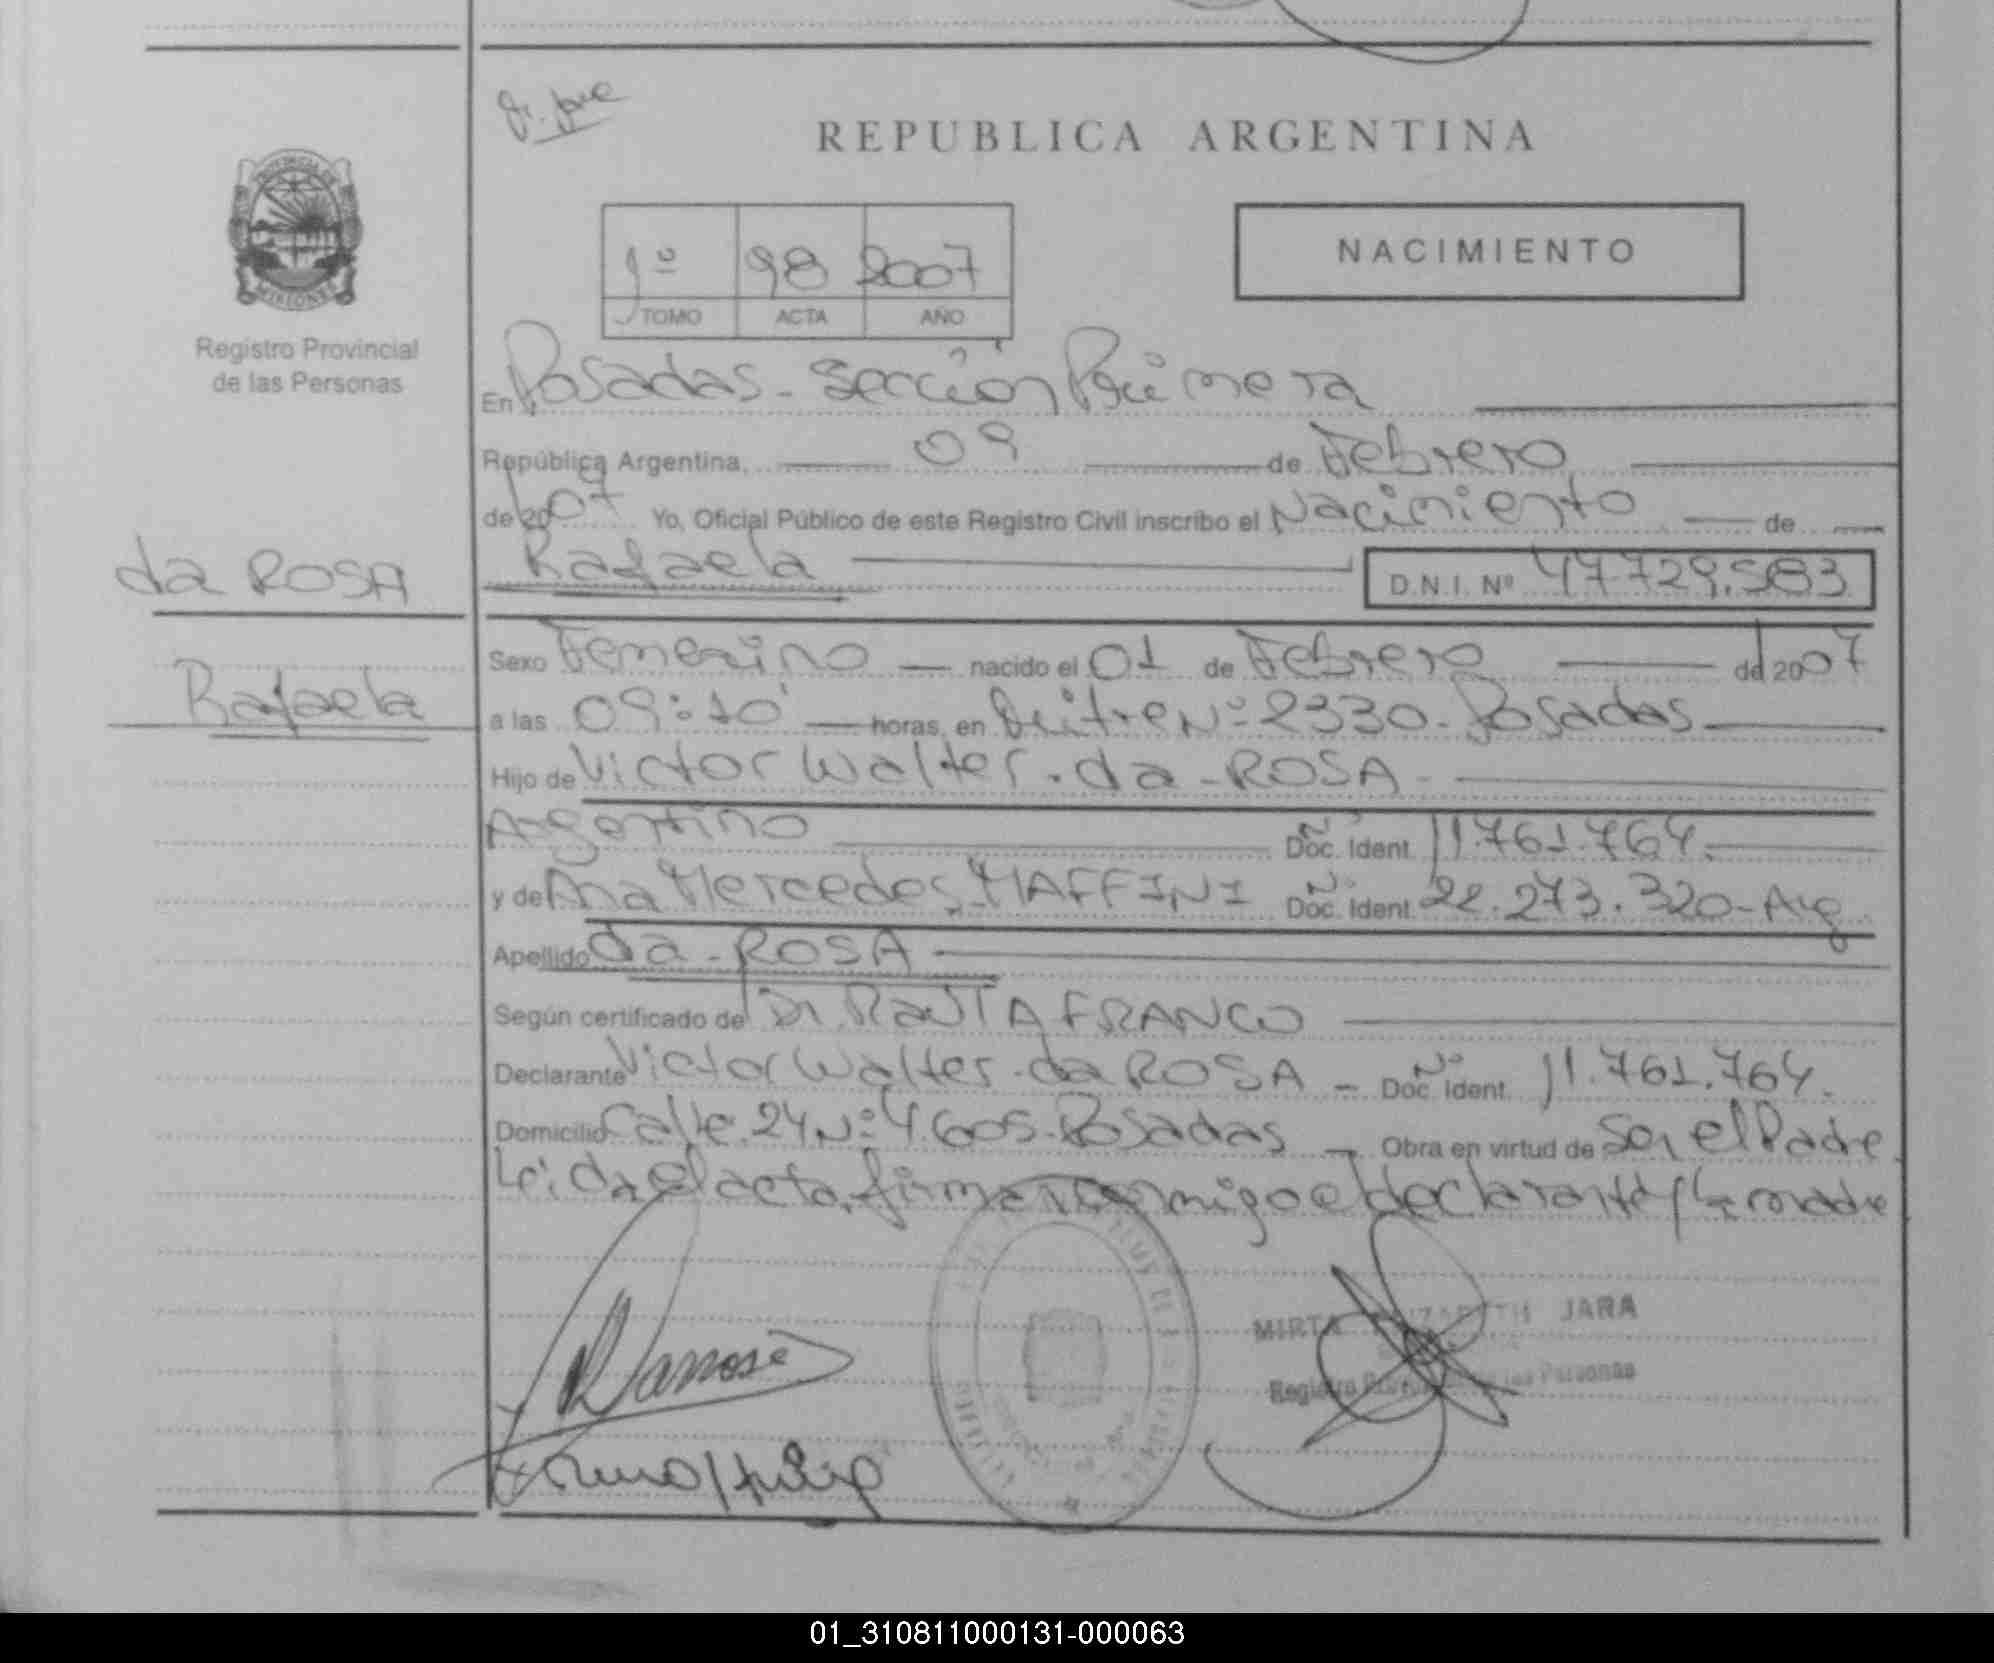 REPUBLICA ARGENTINA
PROVINCIA DE
MISIONES
Registro Provincial
de las Personas
1º 98 2007
TOMO ACTA AÑO
NACIMIENTO
En Posadas - Sección Primera
República Argentina, 09 de Febrero
de 2007 Yo, Oficial Público de este Registro Civil inscribo el Nacimiento de
Rafaela D.N.I. Nº 47.729.583
da ROSA
Rafaela
Sexo Femenino nacido el 01 de Febrero de 2007
a las 09:10' horas, en Mitre Nº 2330 - Posadas
Hijo de Victor Walter da - ROSA
Argentino Nº Doc. Ident. 11.761.764.
y de Ana Mercedes MAFFINI Nº Doc. Ident. 22.273.320 - Arg
Apellido da - ROSA
Según certificado de Dr. FRANCO
Declarante Victor Walter da ROSA - Nº Doc. Ident. 11.761.764.
Domicilio Calle 24 Nº 4.605 - Posadas - Obra en virtud de Ser el Padre.
Leida el acta, firman conmigo el declarante y la madre
MIRTA JARA
Registro de las Personas
01_310811000131-000063